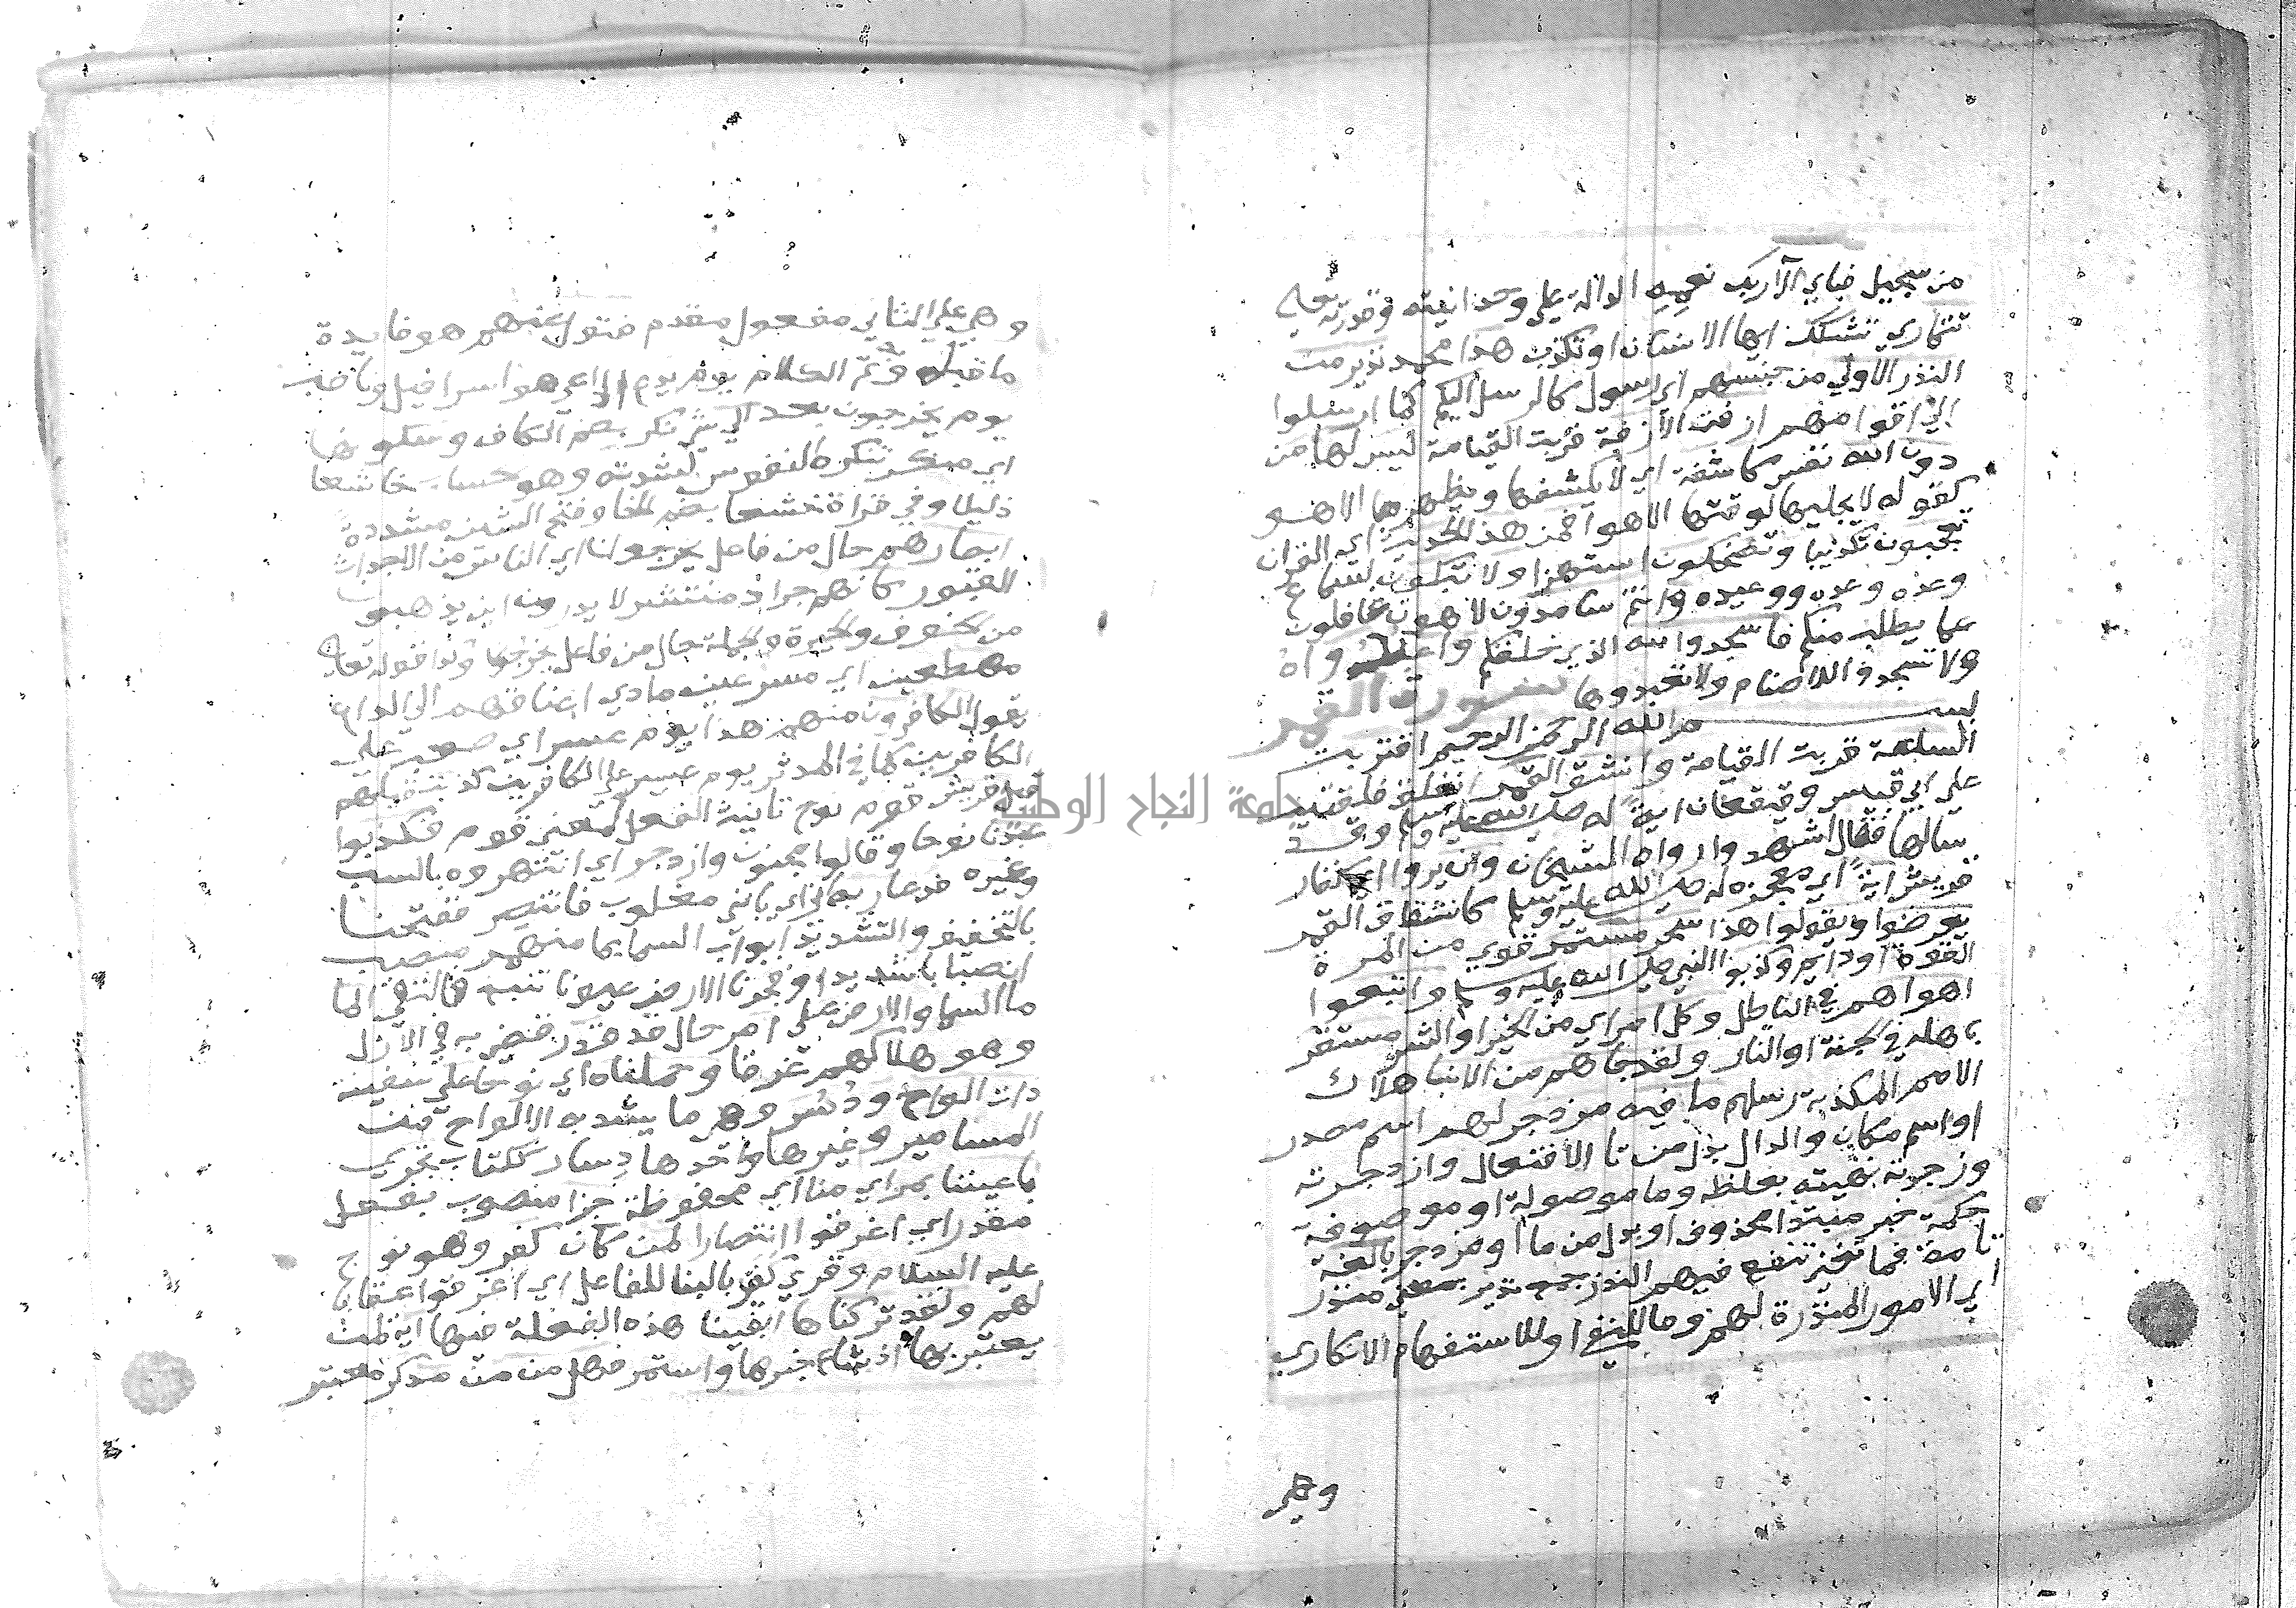 من سجيل فباي الآ ربك نعمه الدالة على وحدانيته وقدرته
تتمارى تشكك ايها الانسان او تكذب هذا محمد نذير من
النذر الاولى من جنسهم اي رسول كالرسل اليكم كما ارسلوا
الى اقوامهم ازفت الازفة قربت القيامة ليس لها من
دون الله نفس كاشفة اي لا يكشفها ويظهرها الا هو
كقوله لا يجليها لوقتها الا هو افمن هذا الحديث اي القران
تعجبون تكذيبا وتضحكون استهزا ولا تبكون لسماع
وعده ووعيده وانتم سامدون لاهون غافلون
عما يطلب منكم فاسجدوا لله الذي خلقكم واعبدواه
ولا تسجدوا للاصنام ولا تعبدوها سورة القمر
بسم الله الرحمن الرحيم اقتربت
الساعة قربت القيامة وانشق القمر انفلق فلقتين
على ابي قبيس وقيقعان اية له صلى الله عليه وسلم وقد
سالها فقال اشهدوا رواه الشيخان وان يروا اي كفار
قريش اية اي معجزه له صلى الله عليه وسلم كانشقاق القمر
يعرضوا ويقولوا هذا سحر مستمر قوي من المرة
القوة او دايم وكذبوا النبي صلى الله عليه وسلم واتبعوا
اهواهم في الباطل وكل امر اي من الخير او الشر مستقر
باهله في الجنة او النار ولقد جاهم من الانبا هلاك
الامم المكذبة رسلهم ما فيه مزدجر لهم اسم مصدر
او اسم مكان والدال بدل من تا الافتعال وازدجرته
وزجرته نهيته بغلظه وما موصولة او موصوفة
حكمة خبر مبتدا محذوف او بدل من ما او مزدجر بالغة
تامة فما تغن تنفع فيهم النذر جمع نذير بمعنى منذر
اي الامور المنذرة لهم وما للنفي او للاستفهام الانكاري
وهي
وهي على الثاني مفعول مقدم فتول عنهم هو فايدة
ما قبله وتم الكلام يوم يدع الداعي هو اسرافيل وناصب
يوم يخرجون بعد الى شي نكر بضم الكاف وسكونها
اي منكر تنكره النفوس لشدته وهو حساب خاشعا
ذليلا وفي قراة خشعا بضم الخا وفتح الشين مشددة
ابصارهم حال من فاعل يخرجون اي الناس من الاجداث
القبور كانهم جراد منتشر لا يدرون اين يذهبو
من الخوف والحيرة والجملة حال من فاعل يخرجون وكذا قوله تعالى
مهطعين اي مسرعين مادي اعناقهم الى الداع
يقول الكافرون منهم هذا يوم عسر اي صعب على
الكافرين كما في المدثر يوم عسير على الكافرين كذبت قبلهم
قبل قريش قوم نوح تانيث الفعل لمعنى قوم فكذبوا
عبدنا نوحا وقالوا مجنون وازدجر اي انتهروه بالسب
وغيره فدعا ربه اني اي باني مغلوب فانتصر ففتحنا
بالتخفيف والتشديد ابواب السما بما منهمر منصب
انصبابا شديدا وفجرنا الارض عيونا تنبع فالتقى الما
ما السما والارض على امر حال قد قدر قضي به في الازل
وهو هلاكهم غرقا وحملناه اي نوحا على سفينة
ذات الواح ودسر وهي ما يشد به الالواح من
المسامير وغيرها واحدها دسار ككتاب تجري
باعيننا بمراي منا اي محفوظة جزا منصوب بفعل
مقدر اي اغرقوا انتصارا لمن كان كفر وهو نوح
عليه السلام وقري كفر بالبنا للفاعل اي اغرقوا عقابا
لهم ولقد تركناها ابقينا هذه الفعلة فيها اية لمن
يعتبر بها اذ شاع خبرها واستمر فهل من من مدكر معتبر
جامعة النجاح الوطنية